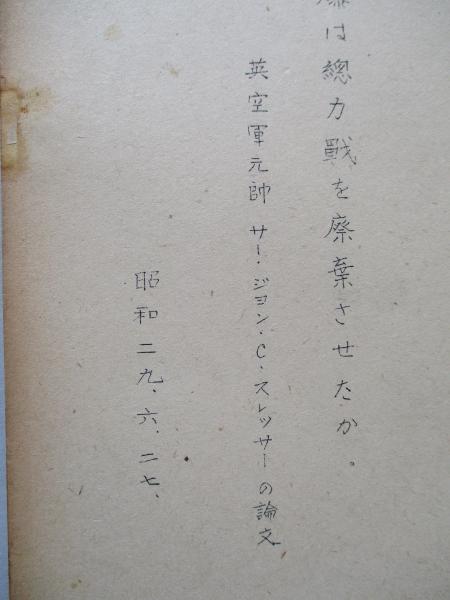 は總力戰を廃棄させたか。
英空軍元帥 サー・ジヨン・C・スレッサーの論文
昭和二九、六、二七、